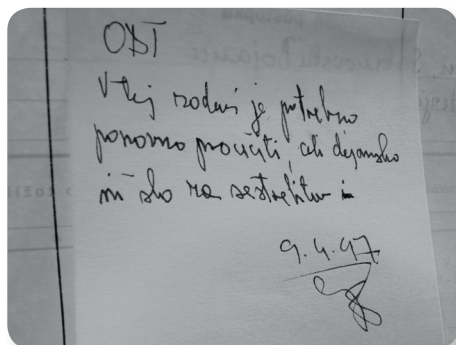 postopku
ODT
V tej zadevi je potrebno
ponovno proučiti, ali dejansko
ni šlo za sestrelitev in
9.4.97